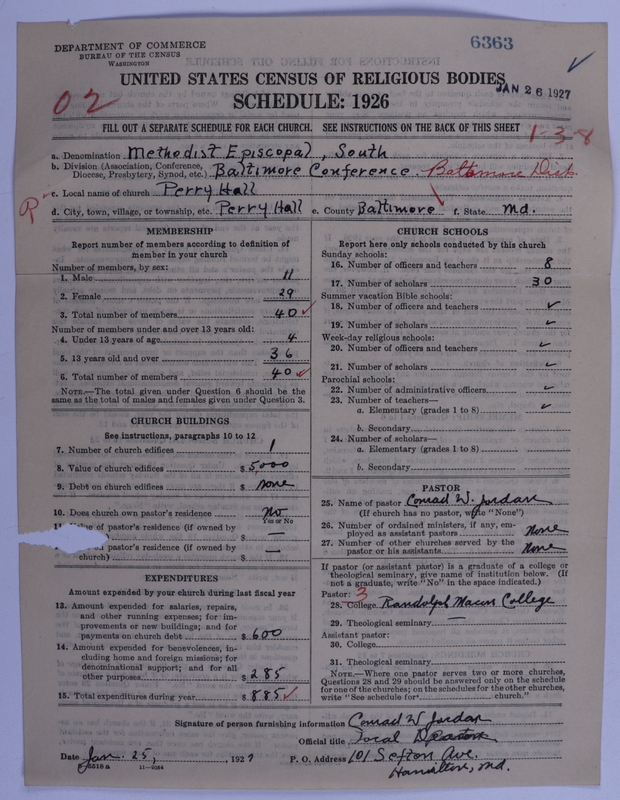 DEPARTMENT OF COMMERCE
BUREAU OF THE CENSUS
WASHINGTON
6363
UNITED STATES CENSUS OF RELIGIOUS BODIES
JAN 26 1927
02
SCHEDULE: 1926
FILL OUT A SEPARATE SCHEDULE FOR EACH CHURCH. SEE INSTRUCTIONS ON THE BACK OF THIS SHEET
1-3-8
a. Denomination Methodist Episcopal, South
b. Division (Association, Conference, Diocese, Presbytery, Synod, etc.) Baltimore Conference. Baltimore Dist.
c. Local name of church Perry Hall
d. City, town, village, or township, etc. Perry Hall e. County Baltimore f. State Md.
MEMBERSHIP
Report number of members according to definition of
member in your church
Number of members, by sex:
1. Male 11
2. Female 29
3. Total number of members 40
Number of members under and over 13 years old:
4. Under 13 years of age 4
5. 13 years old and over 36
6. Total number of members 40
NOTE.—The total given under Question 6 should be
the same as the total of males and females given under Question 3.
CHURCH BUILDINGS
See instructions, paragraphs 10 to 12
7. Number of church edifices 1
8. Value of church edifices $ 5,000
9. Debt on church edifices $ none
10. Does church own pastor's residence No
Yes or No
of pastor's residence (if owned by
$ —
on pastor's residence (if owned by
church) $ —
EXPENDITURES
Amount expended by your church during last fiscal year
13. Amount expended for salaries, repairs,
and other running expenses; for im-
provements or new buildings; and for
payments on church debt $ 600
14. Amount expended for benevolences, in-
cluding home and foreign missions; for
denominational support; and for all
other purposes $ 285
15. Total expenditures during year $ 885
CHURCH SCHOOLS
Report here only schools conducted by this church
Sunday schools:
16. Number of officers and teachers 8
17. Number of scholars 30
Summer vacation Bible schools:
18. Number of officers and teachers
19. Number of scholars
Week-day religious schools:
20. Number of officers and teachers
21. Number of scholars
Parochial schools:
22. Number of administrative officers
23. Number of teachers—
a. Elementary (grades 1 to 8)
b. Secondary
24. Number of scholars—
a. Elementary (grades 1 to 8)
b. Secondary
PASTOR
25. Name of pastor Conrad W. Jordan
(If church has no pastor, write "None")
26. Number of ordained ministers, if any, em-
ployed as assistant pastors None
27. Number of other churches served by the
pastor or his assistants None
If pastor (or assistant pastor) is a graduate of a college or
theological seminary, give name of institution below. (If
not a graduate, write "No" in the space indicated.)
Pastor: 3
28. College Randolph Macon College
29. Theological seminary —
Assistant pastor:
30. College
31. Theological seminary
NOTE.—Where one pastor serves two or more churches,
Questions 28 and 29 should be answered only on the schedule
for one of the churches; on the schedules for the other churches,
write "See schedule for church."
Signature of person furnishing information Conrad W Jordan
Official title Local
Date Jan. 25, 1927 P. O. Address 101 Sefton Ave.
Hamilton, Md.
11—9084